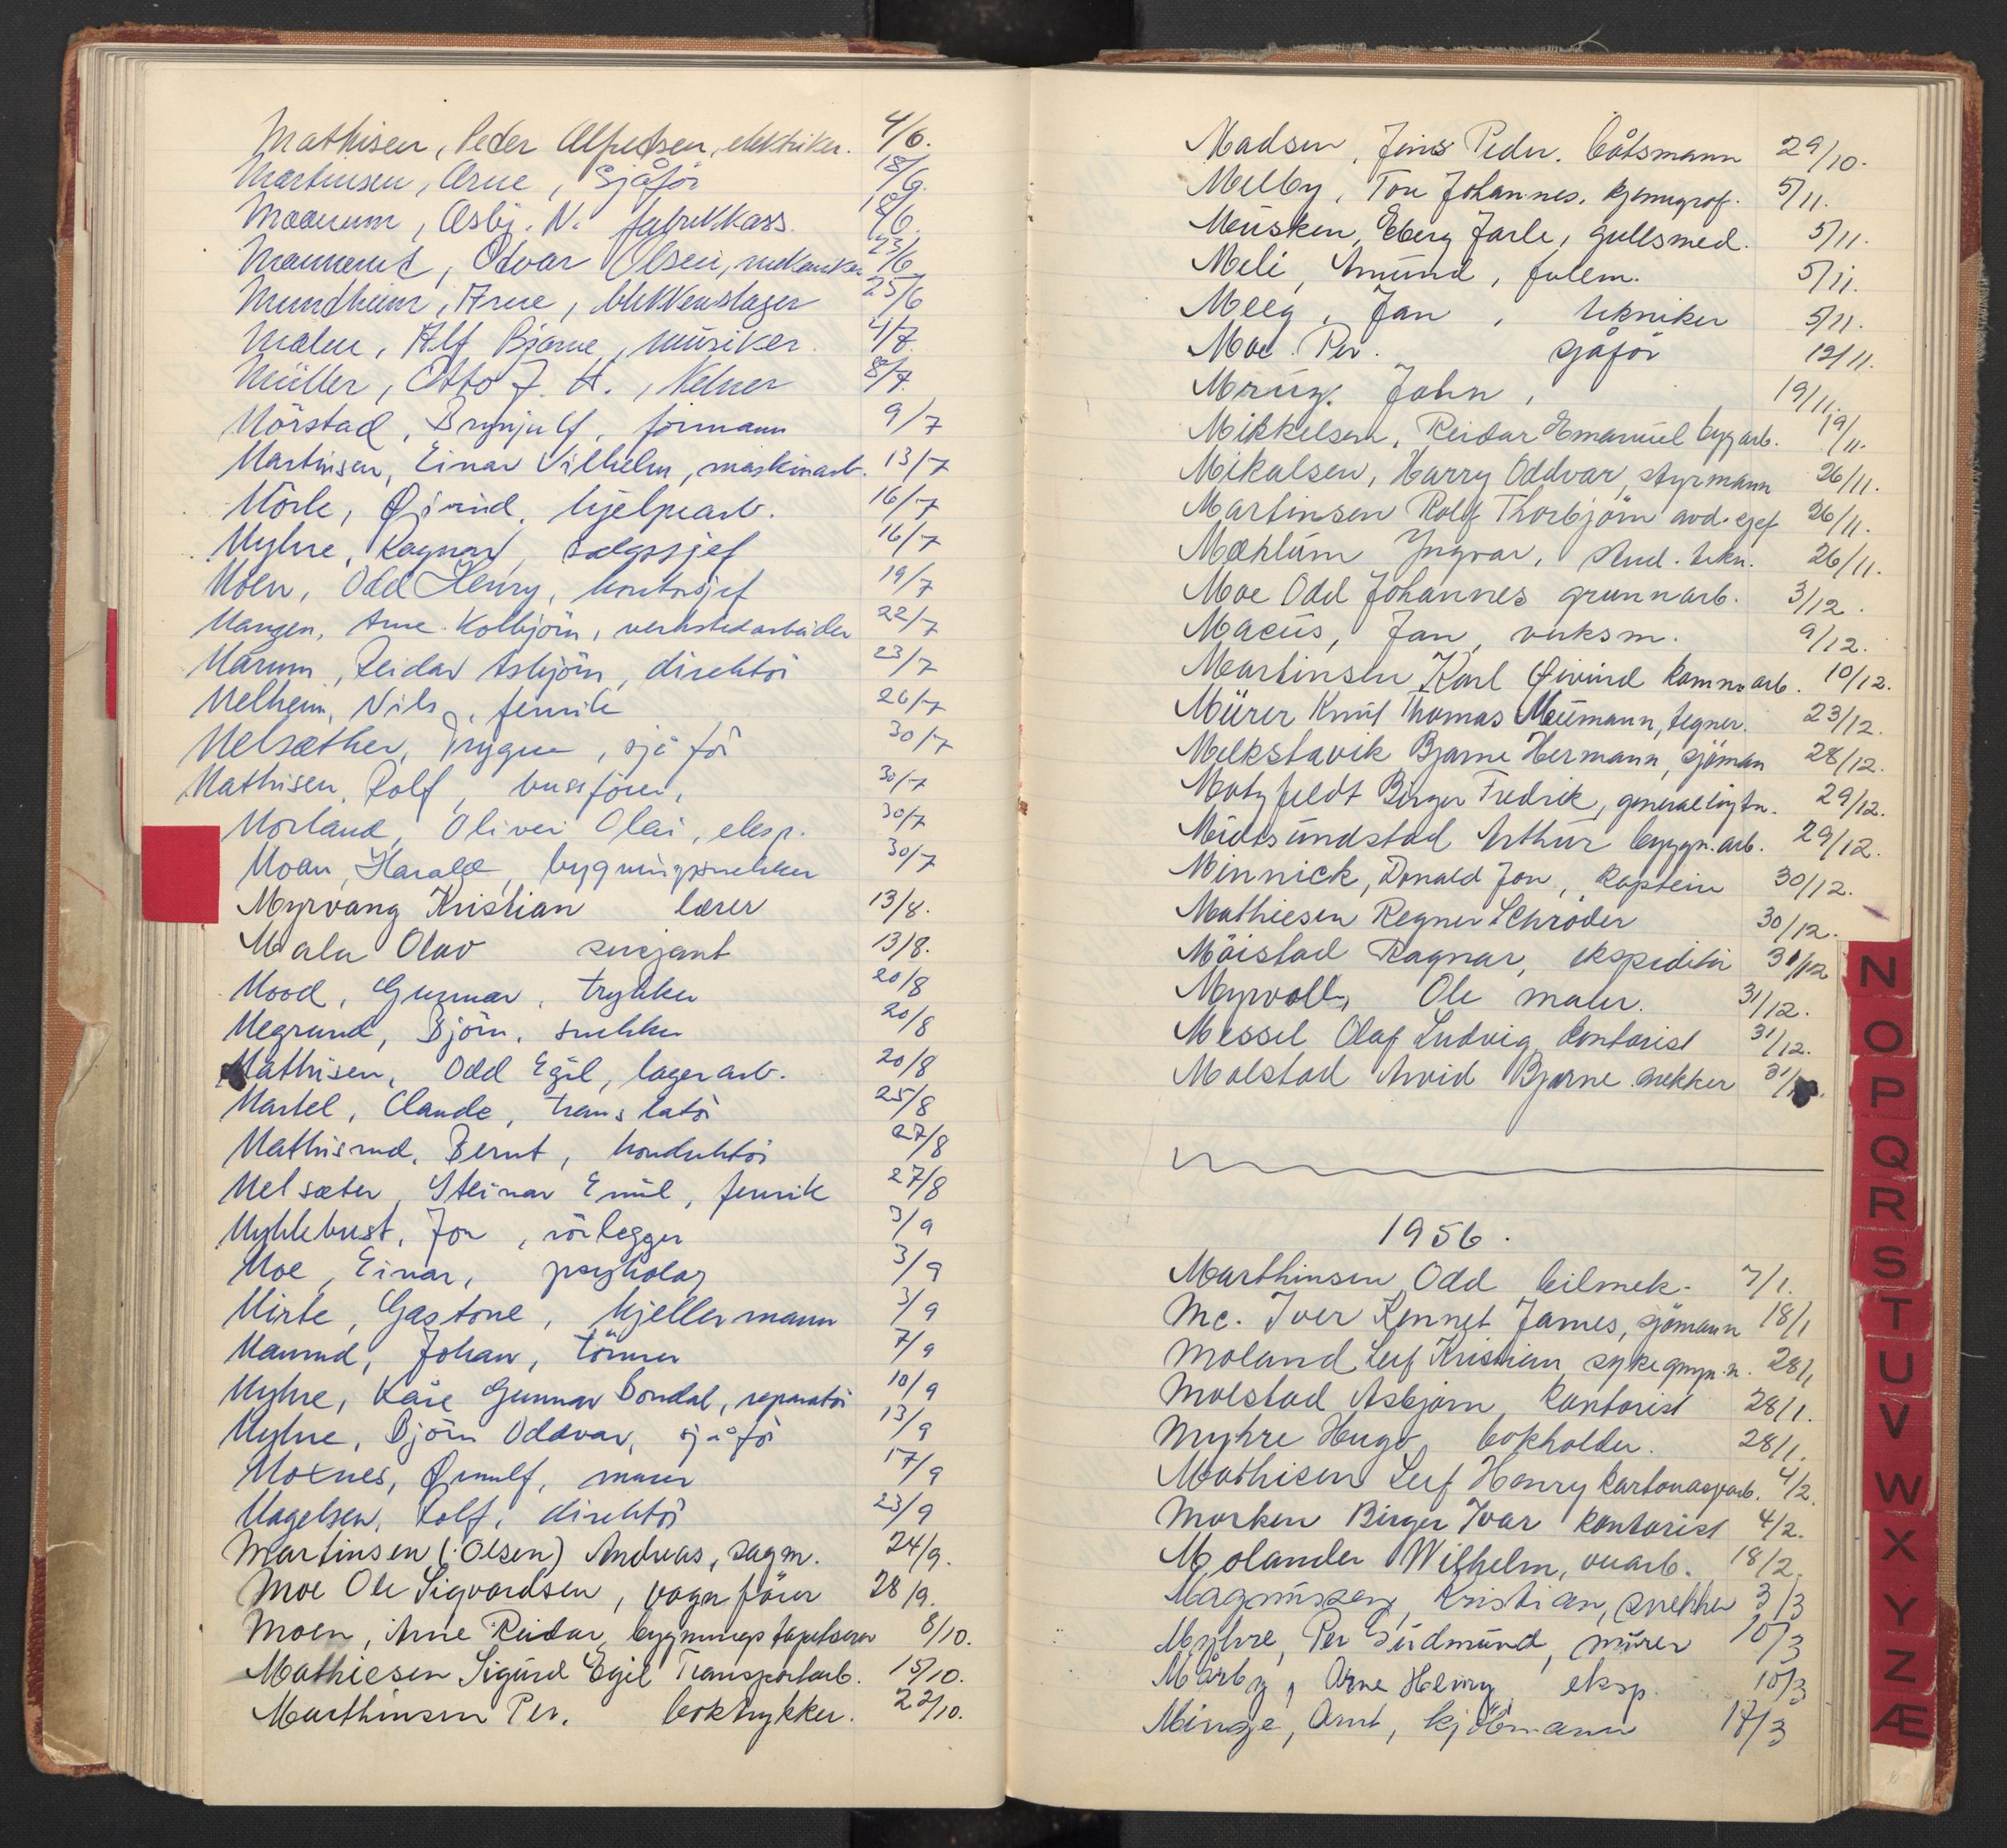 Mathisen, Peder Alfredsen, elektriker. 4/6.
Martinsen, Arne, Sjåför 18/6.
Maanum, Asbj. N. fabrikkass. 18/6.
Odvar Olsen, mekaniker 23/6
Mundheim, Arne, blikkenslager 25/6
Malm, Alf Bjarne, musiker. 4/7.
Müller, Otto J. H., Kelner 8/7.
Mörstad, Brynjulf, formann 9/7
Martinsen, Einar Vilhelm, maskinarb. 13/7
Mörk, Øivind, hjelpearb. 16/7
Myhre, Ragnar, salgssjef 16/7
Moen, Odd Henry, kontorsjef 19/7
Mangen, Arne Kolbjörn, verkstedarbeider 22/7
Marum, Reidar Asbjörn, direktör 23/7
Melheim, Nils, fenrik 26/7
Melsæther, Trygve, sjåför 30/7
Mathisen, Rolf, bussförer, 30/7
Morland, Oliver Olai, eksp. 30/7
Moan, Harald, bygningssnekker 30/7
Myrvang Kristian lærer 13/8.
Mala Olav sersjant 13/8.
Mood, Gunnar, trykker 20/8
Megrund, Björn, snekker 20/8
Mathisen, Odd Egil, lagerarb. 20/8
Martel, Claude, translatör 25/8
Mathisrud, Bernt, konduktör 27/8
Melsæter, Steinar Emil, fenrik 27/8
Myklebust, Jon, rörlegger 3/9
Moe, Einar, psykolog 3/9
Mirte, Gastone, kjellermann 3/9
Maurud, Johan, tömrer 7/9
Myhre, Kåre Gunnar Sondal, reparatör 10/9
Myhre, Björn Oddvar, sjåför 13/9
Moxnes, Ørnulf, murer 17/9
Magelsen, Rolf, direktör 23/9
Martinsen (Olsen) Andreas, sagm. 24/9.
Moe Ole Sigvardsen, vognförer 28/9.
Moen, Arne Reidar, bygningstapetserer 8/10.
Mathiesen Sigurd Egil Transportarb. 15/10.
Marthinsen Per, boktrykker. 22/10.
Madsen, Jens Peder. båtsmann 29/10.
Melby, Tor Johannes, kjemigraf. 5/11.
Musken, Eberg Jarle, gullsmed. 5/11.
Meli, Amund, fulem. 5/11.
Meeg, Jan, tekniker 5/11.
Moe. Per. sjåför 12/11.
Mruz. John, 19/11.
Mikkelsen, Reidar Emanuel bygarb. 19/11.
Mikalsen, Harry Oddvar, styrmann 26/11.
Martinsen Rolf Thorbjörn avd. sjef 26/11.
Mæhlum Yngvar, stud. tekn. 26/11.
Moe Odd Johannes grunnarb. 3/12.
Macus, Jan, verksm. 9/12.
Martinsen Karl Øivind kommarb. 10/12.
Mürer Knut Thomas Meumann, tegner. 23/12.
Melkstavik Bjarne Hermann, sjöman 28/12.
Motzfeldt Birger Fredrik, generalløytn. 29/12.
Midtsundstad Arthur byggn.arb. 29/12.
Minnick, Donald Jon, kaptein 30/12.
Mathiesen Regner Schröder 30/12.
Möistad Ragnar, ekspeditör 31/12
Myrvoll, Ole maler. 31/12.
Messel Olaf Ludvig kontorist 31/12.
Molstad Arvid Bjarne snekker 31/
1956.
Marthinsen Odd bilmek. 7/1.
Mc. Iver Kennet James, sjömann 18/1
Moland Leif Kristian 28/1
Molstad Asbjørn, kontorist 28/1.
Myhre Hugo, bokholder. 28/1.
Mathisen Leif Henry kartonasjearb. 4/2.
Morken Birger Ivar kontorist 4/2.
Molander Wilhelm, 18/2.
Magnussen, Kristian, snekker 3/3
Myhre, Per Gudmund, murer 10/3
Mårby, Arne Henry eksp. 10/3
Minge, Arnt, kjöbmann 17/3
N
O
P
Q
R
S
T
U
V
W
X
Y
Z
Æ